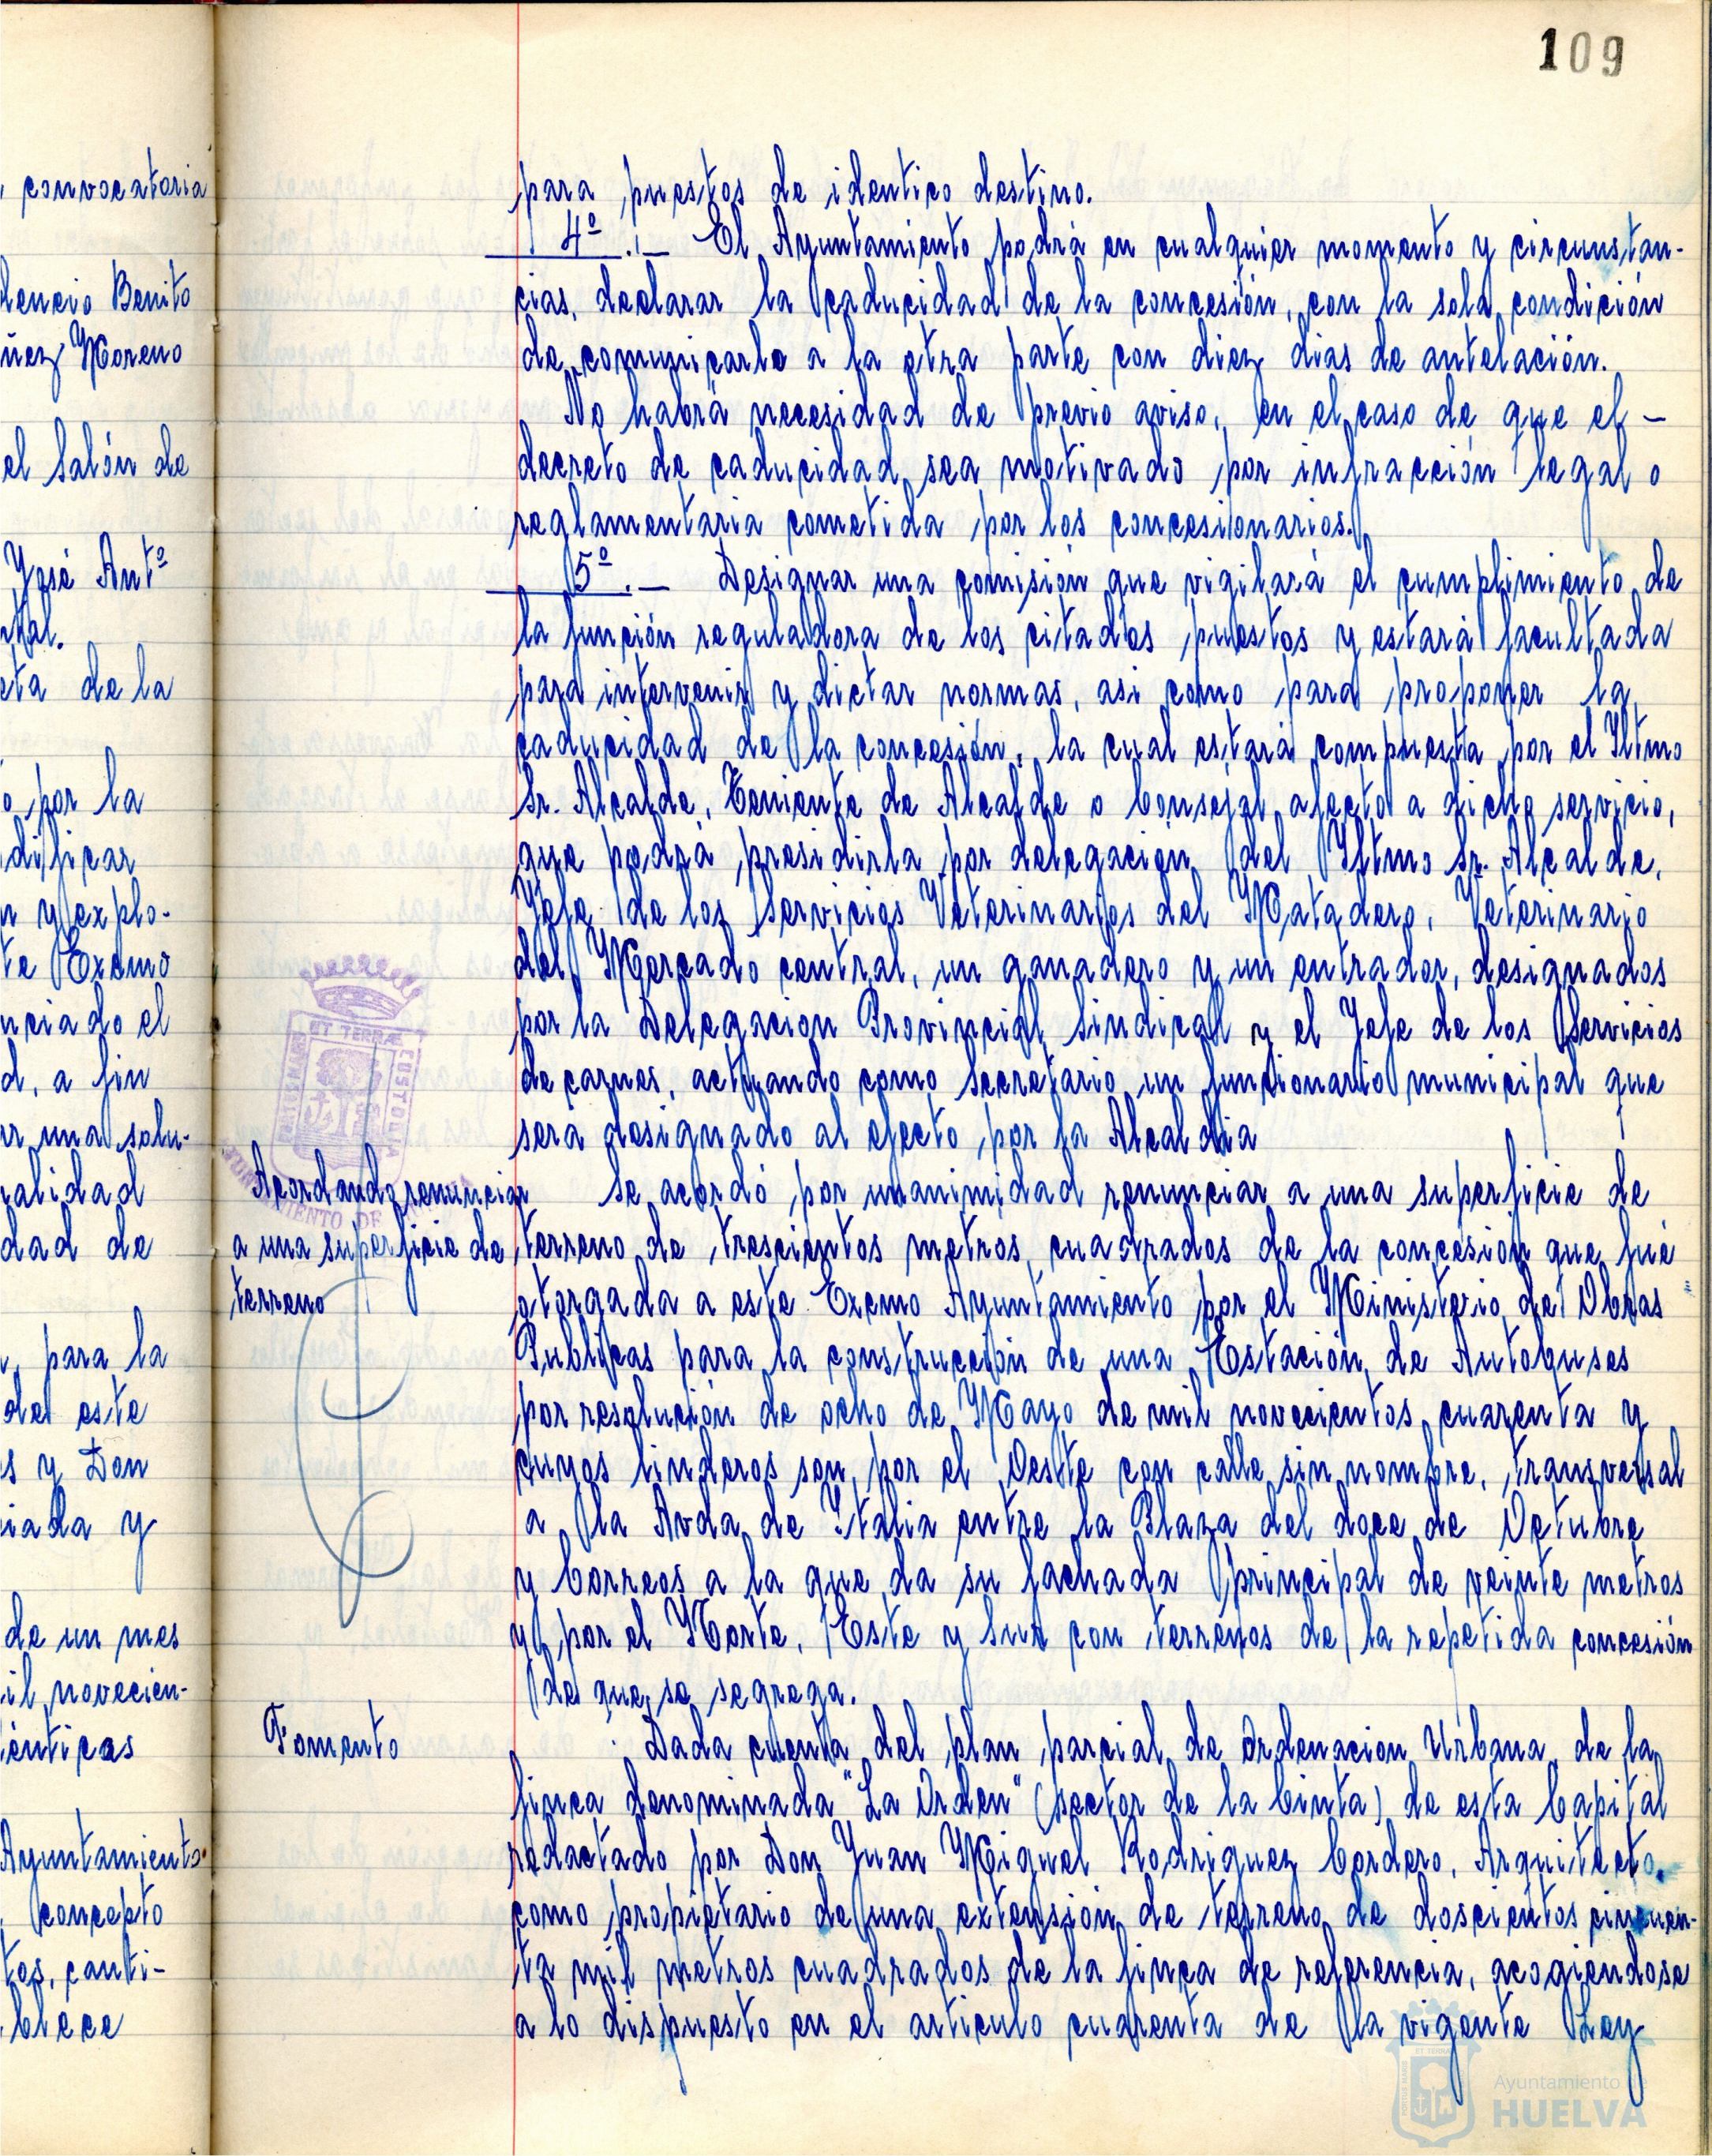 109
, convocatoria
dencio Benito
ñez Moreno
el Salón de
José Antº
tal.
eta de la
o por la
dificar
n y explo-
te Excmo
nciado el
d, a fin
ar una solu-
ralidad
dad de
, para la
de este
s y Don
iada y
de un mes
il novecien-
énticas
Ayuntamiento.
, concepto
tos, canti-
blece
para puestos de identico destino.
4º.- El Ayuntamiento podrá en cualquier momento y circunstan-
cias, declarar la caducidad de la concesión, con la sola condición
de comunicarlo a la otra parte con diez dias de antelación.
No habrá necesidad de previo aviso, en el caso de que el -
decreto de caducidad sea motivado por infracción legal o
reglamentaria cometida por los concesionarios.
5º.- Designar una comisión que vigilará el cumplimiento de
la función reguladora de los citados puestos y estará facultada
para intervenir y dictar normas, asi como para proponer la
caducidad de la concesión, la cual estará compuesta por el Iltmo
Sr. Alcalde, Teniente de Alcalde o Consejal afecto a dicho servicio,
que podrá presidirla por delegación del Iltmo Sr. Alcalde,
Jefe de los Servicios Veterinarios del Matadero, Veterinario
del Mercado central, un ganadero y un entrador, designados
por la Delegacion Provincial Sindical y el Jefe de los Servicios
de carnes, actuando como secretario un funcionario municipal que
será designado al efecto por la Alcaldia
Acordando renunciar
a una superficie de
terreno
Se acordó por unanimidad renunciar a una superficie de
terreno de trescientos metros cuadrados de la concesión que fué
otorgada a este Excmo Ayuntamiento por el Ministerio de Obras
Publicas para la construcción de una Estación de Autobuses
por resolución de ocho de Mayo de mil novecientos cuarenta y
cuyos linderos son, por el Oeste con calle sin nombre, transversal
a la Avda de Italia entre la Plaza del doce de Octubre
y Correos a la que da su fachada principal de veinte metros
y por el Norte, Este y Sur con terrenos de la repetida concesión
de que se segrega.
Fomento
Dada cuenta del plan parcial de Ordenacion Urbana de la
finca denominada "La Orden" (sector de la Cinta) de esta Capital
redactado por Don Juan Miguel Rodriguez Cordero, Arquitecto,
como propietario de una extensión de terreno de doscientos cincuen-
ta mil metros cuadrados de la finca de referencia, acogiendose
a lo dispuesto en el articulo cuarenta de la vigente Ley
ET TERRAE CUSTODIA
AYUNTAMIENTO DE
Ayuntamiento de
HUELVA